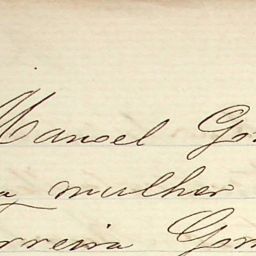 Manoel Gon
mulher
rreira Gom